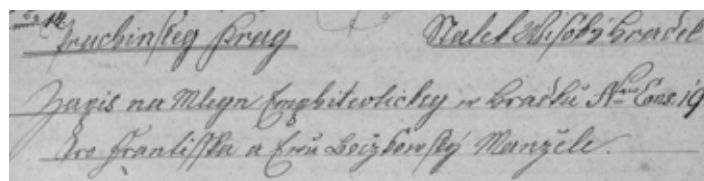 Prachinskey Kray Statek Wisoký hradek
Zapis na Mleyn Emphiteoticky w hradku Nro Cons. 19
Pro Frantisska a Ewu Boczkowsky Manzele.